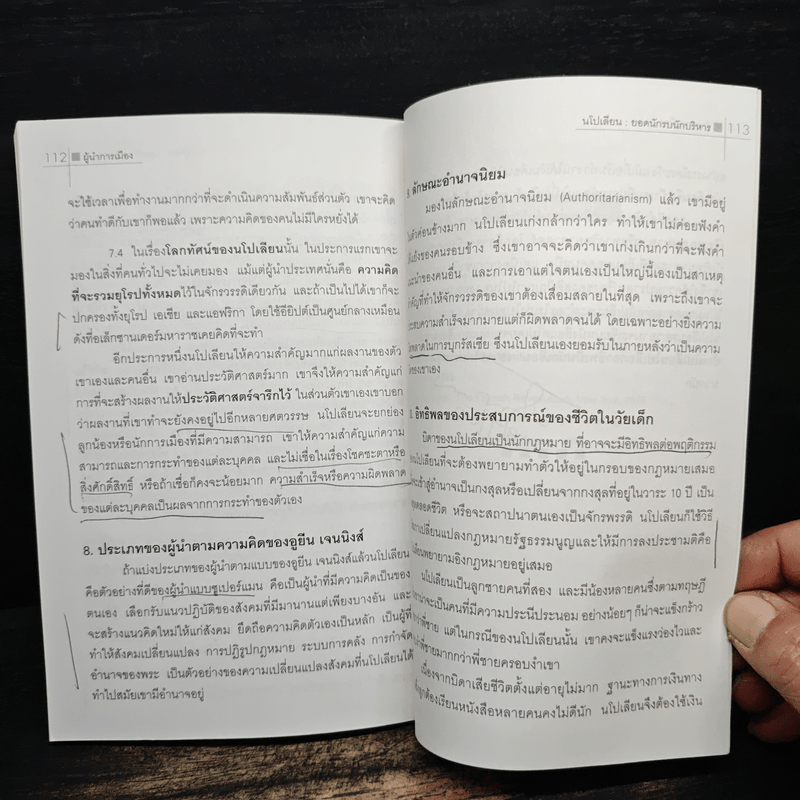 112 ■ ผู้นำการเมือง
จะใช้เวลาเพื่อทำงานมากกว่าที่จะดำเนินความสัมพันธ์ส่วนตัว เขาจะคิด
ว่าคนทำดีกับเขาก็พอแล้ว เพราะความคิดของคนไม่มีใครหยั่งได้
7.4 ในเรื่องโลกทัศน์ของนโปเลียนนั้น ในประการแรกเขาจะ
มองในสิ่งที่คนทั่วไปจะไม่เคยมอง แม้แต่ผู้นำประเทศนั่นคือ ความคิด
ที่จะรวมยุโรปทั้งหมดไว้ในจักรวรรดิเดียวกัน และถ้าเป็นไปได้เขาก็จะ
ปกครองทั้งยุโรป เอเซีย และแอฟริกา โดยใช้อียิปต์เป็นศูนย์กลางเหมือน
ดังที่อเล็กซานเดอร์มหาราชเคยคิดที่จะทำ
อีกประการหนึ่งนโปเลียนให้ความสำคัญมากแก่ผลงานของตัว
เขาเองและคนอื่น เขาอ่านประวัติศาสตร์มาก เขาจึงให้ความสำคัญแก่
การที่จะสร้างผลงานให้ประวัติศาสตร์จารึกไว้ ในส่วนตัวเขาเองเขาบอก
ว่าผลงานที่เขาทำจะยังคงอยู่ไปอีกหลายศตวรรษ นโปเลียนจะยกย่อง
ลูกน้องหรือนักการเมืองที่มีความสามารถ เขาให้ความสำคัญแก่ความ
สามารถและการกระทำของแต่ละบุคคล และไม่เชื่อในเรื่องโชคชะตาหรือ
สิ่งศักดิ์สิทธิ์ หรือถ้าเชื่อก็คงจะน้อยมาก ความสำเร็จหรือความผิดพลาด
ของแต่ละบุคคลเป็นผลจากการกระทำของตัวเอง
8. ประเภทของผู้นำตามความคิดของอูยีน เจนนิงส์
ถ้าแบ่งประเภทของผู้นำตามแบบของอูยีน เจนนิงส์แล้วนโปเลียน
คือตัวอย่างที่ดีของผู้นำแบบซูเปอร์แมน คือเป็นผู้นำที่มีความคิดเป็นของ
ตนเอง เลือกรับแนวปฏิบัติของสังคมที่มีมานานแต่เพียงบางอัน และ
จะสร้างแนวคิดใหม่ให้แก่สังคม ยึดถือความคิดตัวเองเป็นหลัก เป็นผู้ที่
ทำให้สังคมเปลี่ยนแปลง การปฏิรูปกฎหมาย ระบบการคลัง การกำจัด
อำนาจของพระ เป็นตัวอย่างของความเปลี่ยนแปลงสังคมที่นโปเลียนได้
ทำไปสมัยเขามีอำนาจอยู่
นโปเลียน : ยอดนักรบนักบริหาร ■ 113
ลักษณะอำนาจนิยม
มองในลักษณะอำนาจนิยม (Authoritarianism) แล้ว เขามีอยู่
ในตัวค่อนข้างมาก นโปเลียนเก่งกล้ากว่าใคร ทำให้เขาไม่ค่อยฟังคำ
ของคนรอบข้าง ซึ่งเขาอาจจะคิดว่าเขาเก่งเกินกว่าที่จะฟังคำ
แนะนำของคนอื่น และการเอาแต่ใจตนเองเป็นใหญ่นี้เองเป็นสาเหตุ
สำคัญที่ทำให้จักรวรรดิของเขาต้องเสื่อมสลายในที่สุด เพราะถึงเขาจะ
ประสบความสำเร็จมากมายแต่ก็ผิดพลาดจนได้ โดยเฉพาะอย่างยิ่งความ
พลาดในการบุกรัสเซีย ซึ่งนโปเลียนเองยอมรับในภายหลังว่าเป็นความ
ของเขาเอง
อิทธิพลของประสบการณ์ของชีวิตในวัยเด็ก
บิดาของนโปเลียนเป็นนักกฎหมาย ที่อาจจะมีอิทธิพลต่อพฤติกรรม
นโปเลียนที่จะต้องพยายามทำตัวให้อยู่ในกรอบของกฎหมายเสมอ
จะเข้าสู่อำนาจเป็นกงสุลหรือเปลี่ยนจากกงสุลที่อยู่ในวาระ 10 ปี เป็น
ตลอดชีวิต หรือจะสถาปนาตนเองเป็นจักรพรรดิ นโปเลียนก็ใช้วิธี
การเปลี่ยนแปลงกฎหมายรัฐธรรมนูญและให้มีการลงประชามติคือ
พยายามอิงกฎหมายอยู่เสมอ
นโปเลียนเป็นลูกชายคนที่สอง และมีน้องหลายคนซึ่งตามทฤษฎี
น่าจะเป็นคนที่มีความประนีประนอม อย่างน้อยๆ ก็น่าจะแข็งกร้าว
พี่ชาย แต่ในกรณีของนโปเลียนนั้น เขาคงจะแข็งแรงว่องไวและ
พี่ชายมากกว่าพี่ชายครอบงำเขา
เนื่องจากบิดาเสียชีวิตตั้งแต่อายุไม่มาก ฐานะทางการเงินทาง
ลูกต้องเรียนหนังสือหลายคนคงไม่ดีนัก นโปเลียนจึงต้องใช้เงิน